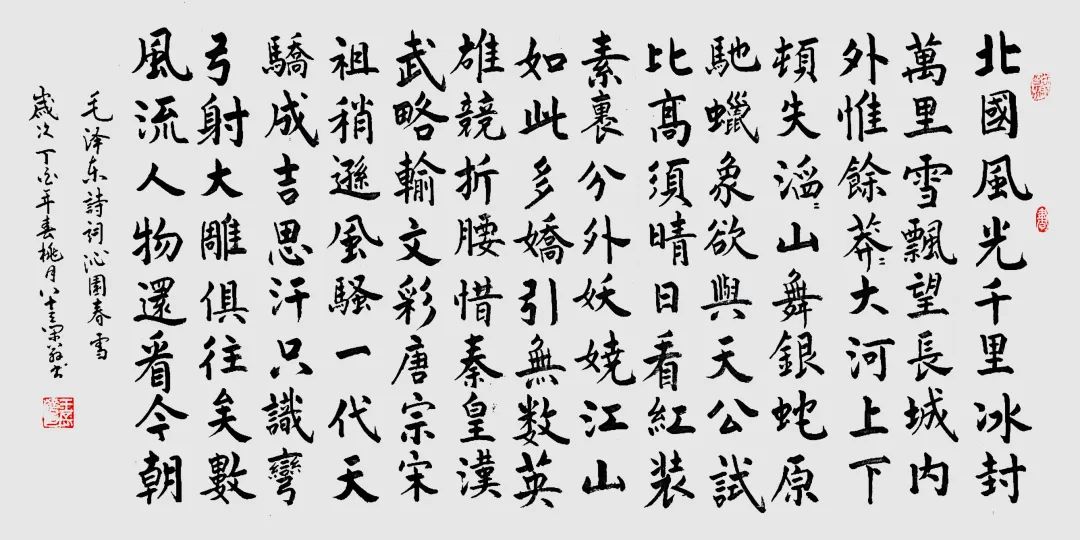 北國風光千里冰封
萬里雪飄望長城内
外惟餘莽〻大河上下
頓失滔〻山舞銀蛇原
馳蠟象欲與天公試
比髙須晴日看紅装
素裹分外妖娆江山
如此多嬌引無数英
雄競折腰惜秦皇漢
武略輸文彩唐宗宋
祖稍遜風騷一代天
驕成吉思汗只識彎
弓射大雕俱往矣數
風流人物還看今朝
毛泽东詩詞沁園春雪
歲次丁酉年春桃月八